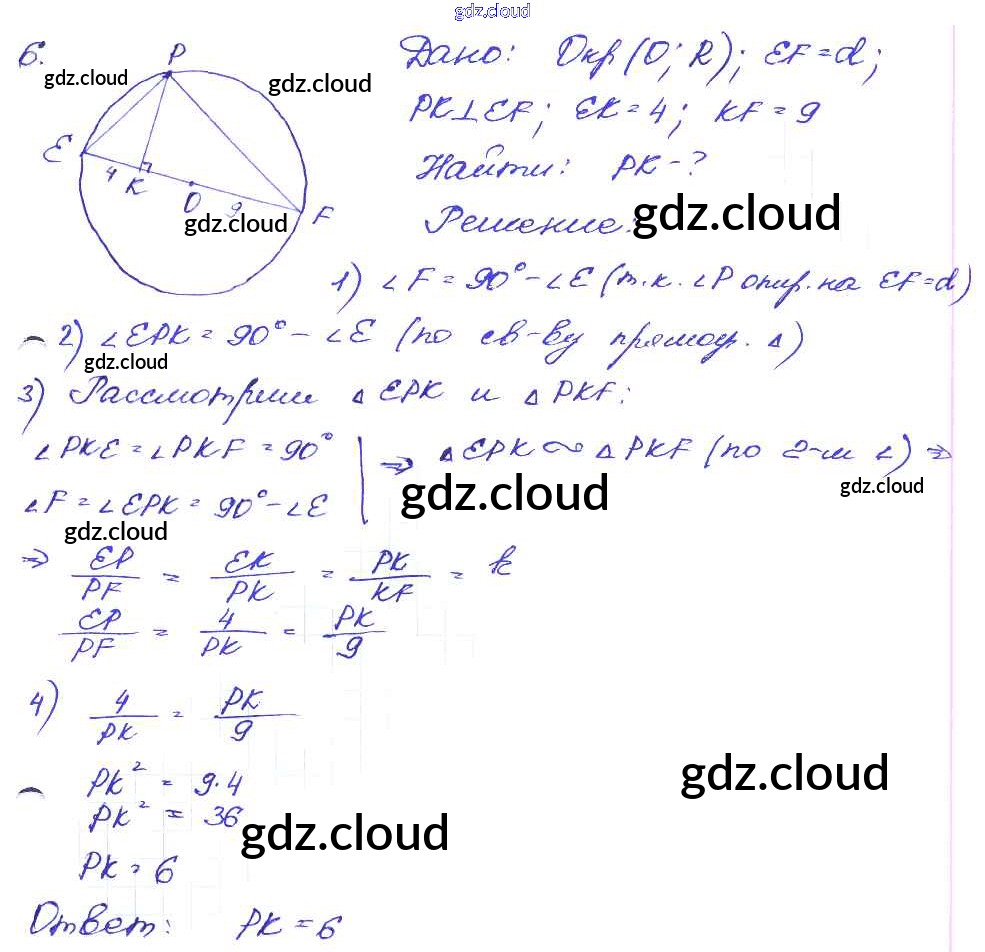 gdz.cloud
6.
P
E
4
K
O
9
F
gdz.cloud
gdz.cloud
gdz.cloud
Дано: Окр(O; R); EF=d;
PK⊥EF; EK=4; KF=9
Найти: PK-?
Решение:
gdz.cloud
1) ∠F = 90°-∠E (т.к. ∠P опир. на EF=d)
2) ∠EPK = 90° - ∠E (по св-ву прямоуг. Δ)
gdz.cloud
3) Рассмотрим Δ EPK и Δ PKF:
∠PKE = ∠PKF = 90° | ⇒ Δ EPK ∾ Δ PKF (по 2-м ∠) ⇒
∠F = ∠EPK = 90°-∠E
gdz.cloud
gdz.cloud
gdz.cloud
⇒ EP/PF = EK/PK = PK/KF = k
EP/PF = 4/PK = PK/9
4) 4/PK = PK/9
PK² = 9·4
gdz.cloud
PK² = 36
gdz.cloud
PK = 6
Ответ: PK = 6